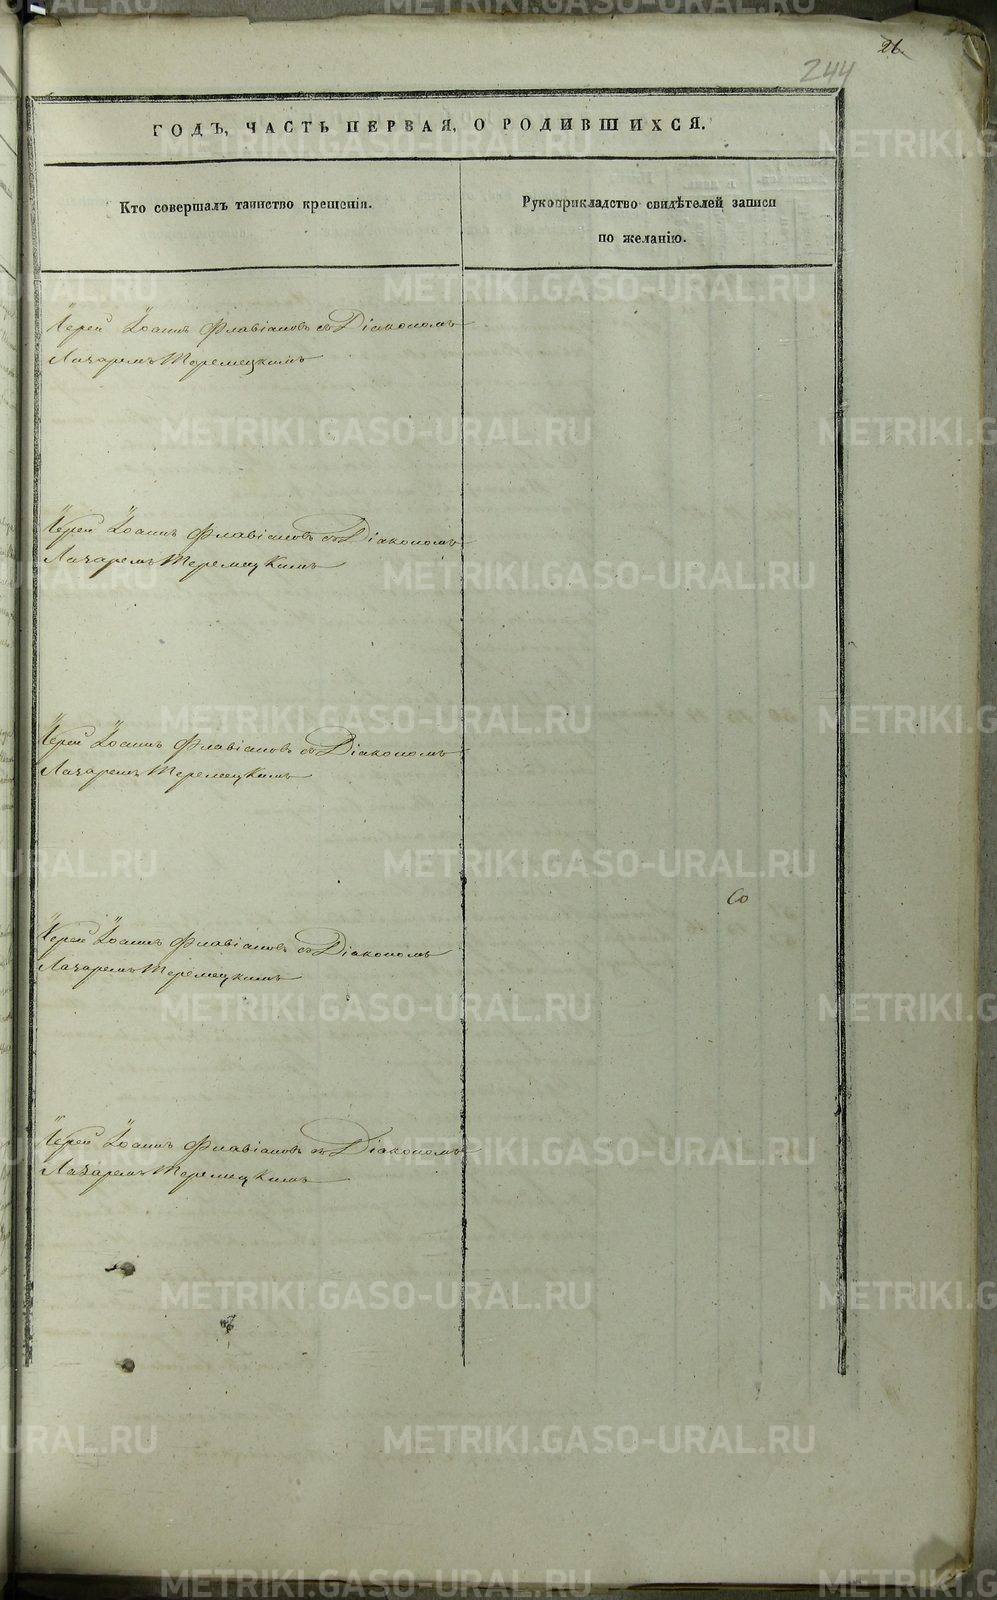 26.
244
ГОДЪ, ЧАСТЬ ПЕРВАЯ, О РОДИВШИХСЯ.
Кто совершалъ таинство крещенія.
Рукоприкладство свидѣтелей записи
по желанію.
Іерей Іоаннъ Флавіановъ съ Діакономъ
Лазаремъ Теремецкимъ
Іерей Іоаннъ Флавіановъ съ Діакономъ
Лазаремъ Теремецкимъ
Іерей Іоаннъ Флавіановъ съ Діакономъ
Лазаремъ Теремецкимъ
Іерей Іоаннъ Флавіановъ съ Діакономъ
Лазаремъ Теремецкимъ
Іерей Іоаннъ Флавіановъ съ Діакономъ
Лазаремъ Теремецкимъ
METRIKI.GASO-URAL.RU